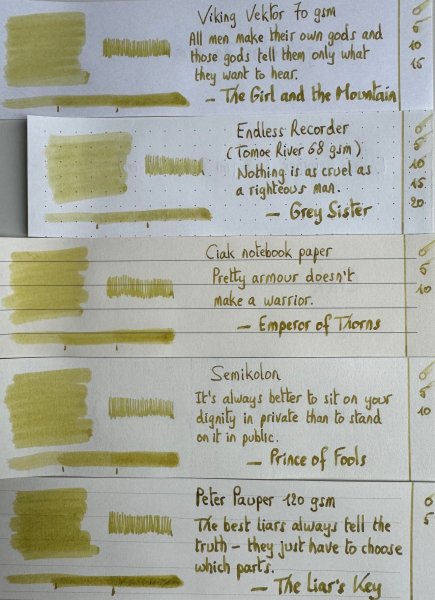 Viking Vektor 70 gsm
All men make their own gods and
those gods tell them only what
they want to hear.
— The Girl and the Mountain
0
5
10
15
Endless Recorder
(Tomoe River 68 gsm)
Nothing is as cruel as
a righteous man.
— Grey Sister
0
5
10
15
20
Ciak notebook paper
Pretty armour doesn't
make a warrior.
— Emperor of Thorns
0
5
10
Semikolon
It's always better to sit on your
dignity in private than to stand
on it in public.
— Prince of Fools
0
5
10
Peter Pauper 120 gsm
The best liars always tell the
truth – they just have to choose
which parts.
— The Liar's Key
0
5